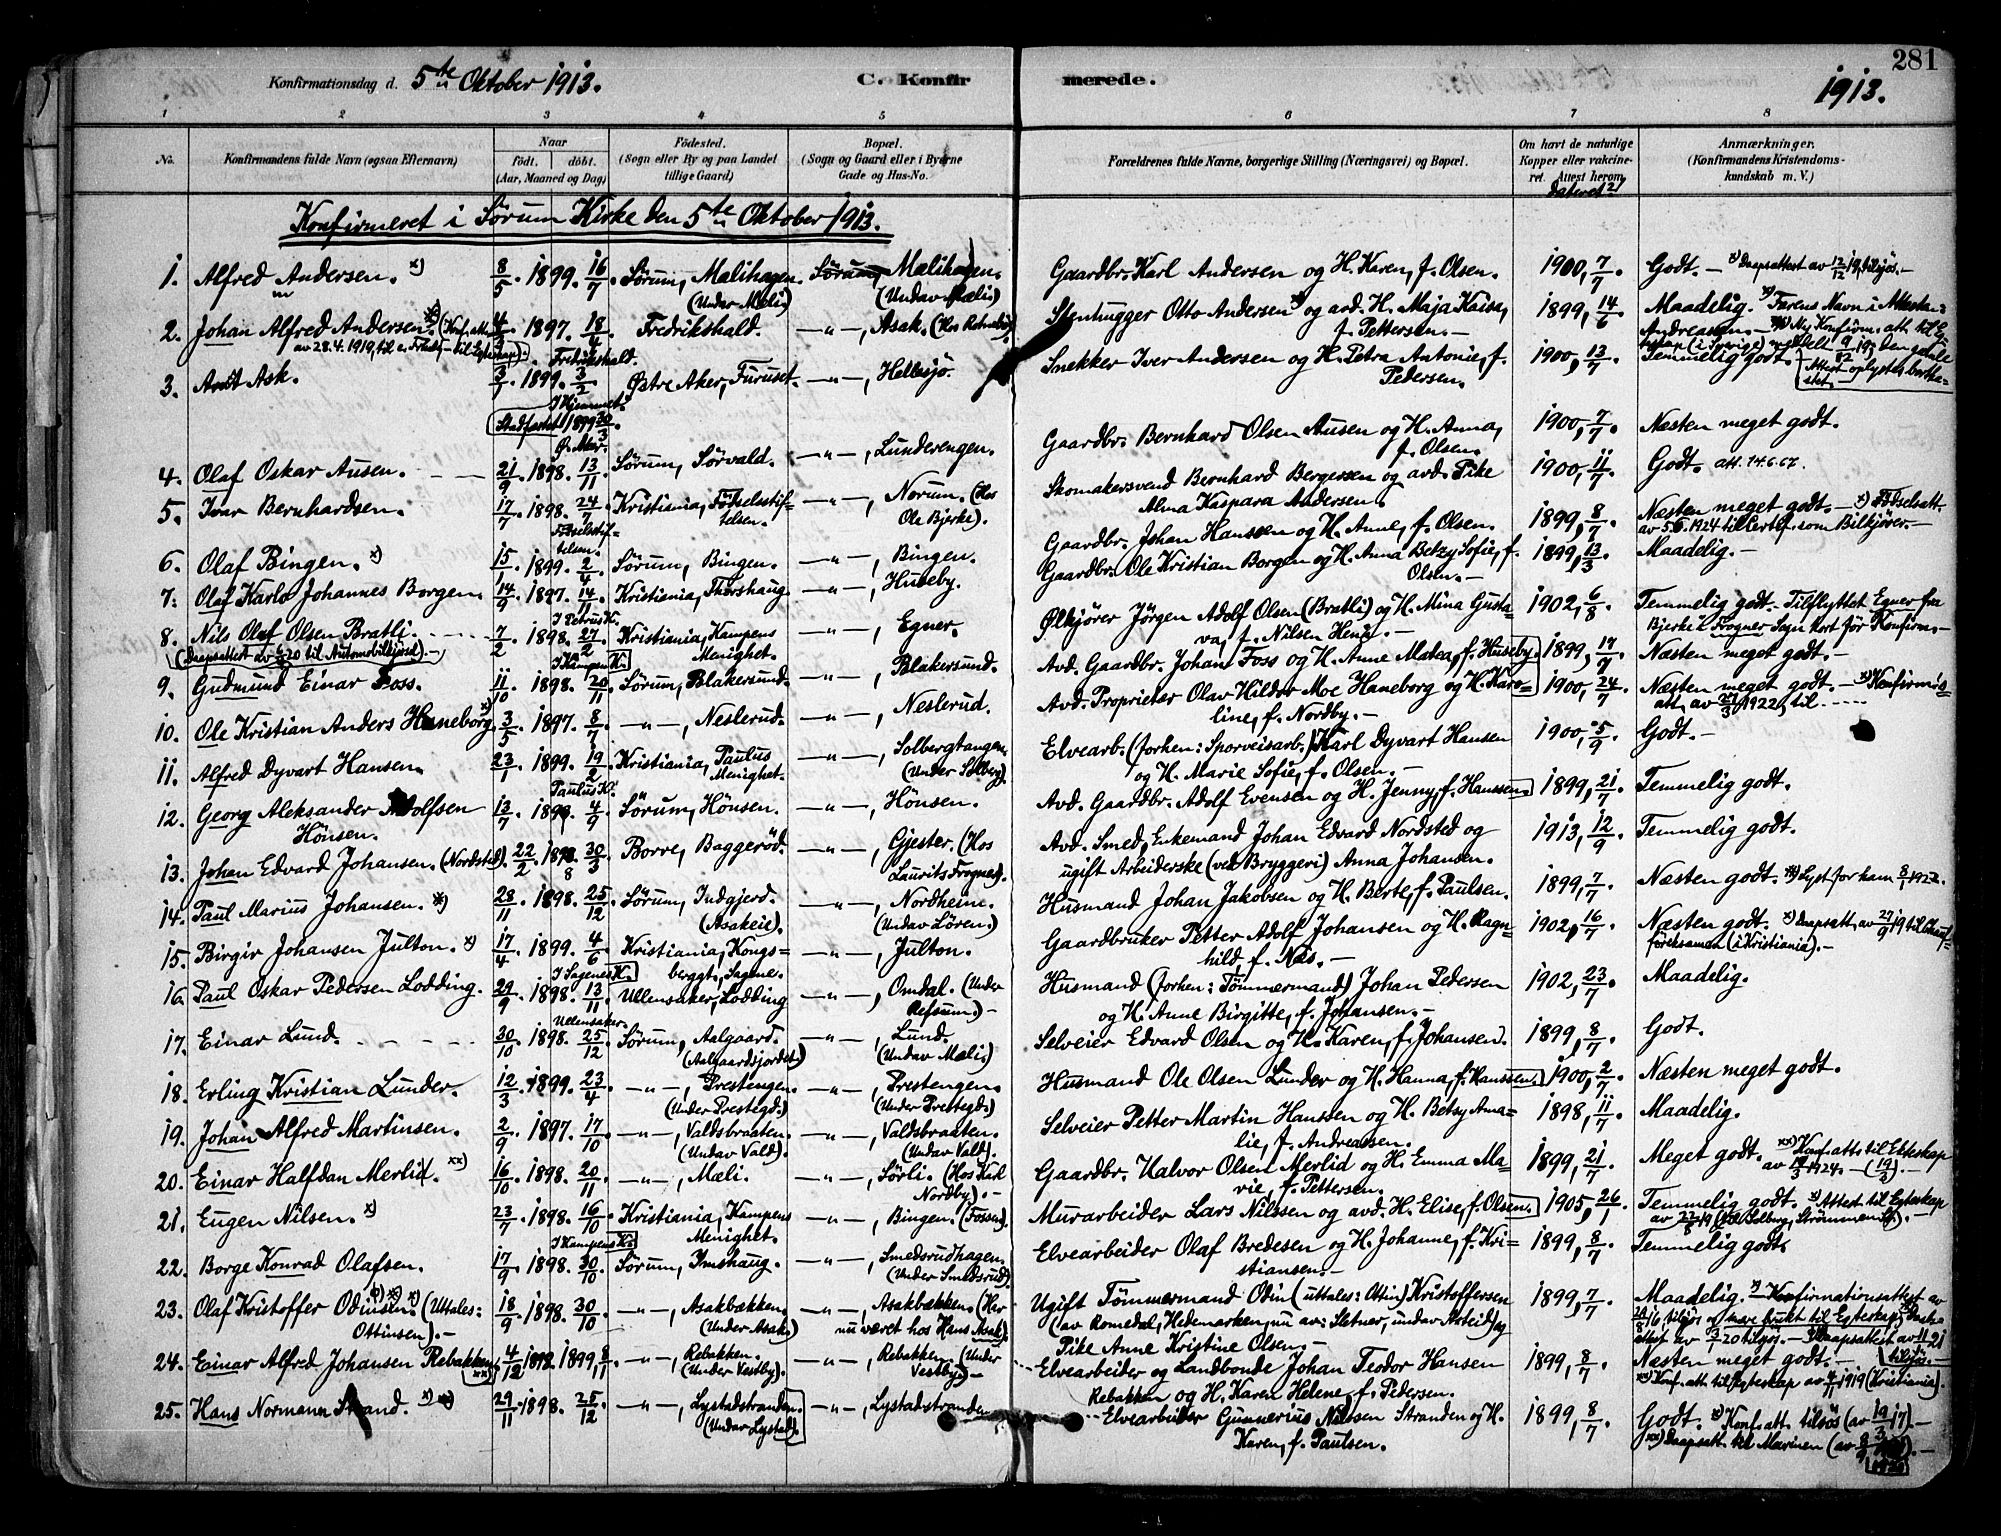 281
Konfirmationsdag d. 5te Oktober 1913.
C. Konfirmerede.
1913.
1 2 3 4 5 6 7 8
No.
Konfirmandens fulde Navn (ogsaa Efternavn)
Naar
født. døbt.
(Aar, Maaned og Dag)
Fødested.
(Sogn eller By og paa Landet
tillige Gaard)
Bopæl.
(Sogn og Gaard eller i Byerne
Gade og Hus-No.
Forældrenes fulde Navne, borgerlige Stilling (Næringsvei) og Bopæl.
Om havt de naturlige
Kopper eller vakcine-
ret. Attest herom
dateret?
Anmærkninger.
(Konfirmandens Kristendoms-
kundskab m. V.)
Konfirmeret i Sørum Kirke den 5te Oktober 1913.
1. Alfred Andersen. x) 8/5 1899. 16/7 Sørum, Mælihagen. Mælihagen. Gaardbr. Karl Andersen og H. Karen, f. Olsen. 1900, 7/7 Godt. –
(Under Mæli) (Under Mæli)
2. Johan Alfred Andersen. 1897. 18/4 Fredrikshald. –„–, Asak. Stenhugger Otto Andersen og avd. H. Maja Kaisa, 1899, 14/6 Maadelig.
f. Pettersen. –
Fredrikshald.
3. Arnt Ask. 1899. 3/2 Østre Aker, Furuset. –„–, Hellesjø. Snekker Iver Andersen og H. Petra Antonie, f. 1900, 13/7 Temmelig godt.
Pedersen.
I Hjemmet.
Stadfæstet 1899 30/3
Ø. Aker.
4. Olaf Oskar Ausen. 21/9 1898. 13/11 Sørum, Sørvald. –„–, Lunderengen. Gaardbr. Bernhard Olsen Ausen og H. Anna, 1900, 7/7 Næsten meget godt.
f. Olsen.
5. Ivar Bernhardsen. 17/7 1898. 24/7 Kristiania, Fødselsstif-telsen. –„–, Norum. (Hos Skomakersvend Bernhard Bergersen og avd. Pike 1900, 11/7 Godt. att. 14.6.67.
Fødselsstif-telsen. Ole Bjerke). Alma Kaspara Andersen.
6. Olaf Bingen. x) 15/1 1899. 2/4 Sørum, Bingen. –„–, Bingen. Gaardbr. Johan Hanssen og H. Anne, f. Olsen. 1899, 8/7 Næsten meget godt. – x) Fødselsatt.
av 5.6.1924 til Certif. som Bilkjører. –
7. Olaf Karlo Johannes Borgen. 14/9 1897. 14/11 Kristiania, Thorshaug. –„–, Huseby. Gaardbr. Ole Kristian Borgen og H. Anna Betzy Sofie, f. 1899, 13/3 Maadelig. –
I Petrus K. Olsen. –
8. Nils Olaf Olsen Bratli. 7/2 1898. 27/2 Kristiania, Kampens –„–, Egner. Ølkjører Jörgen Adolf Olsen (Bratli) og H. Mina Gusta- 1902, 6/8 Temmelig godt. Tilflyttet Egner fra
I Kampens K. Menighet. va, f. Nilsen Henie. – Bjerke i Frogner Sogn kort før Konfirm. –
9. Gudmund Einar Foss. 11/10 1898. 20/11 Sørum, Blakersund. –„–, Blakersund. Avd. Gaardbr. Johan Foss og H. Anne Matea, f. Huseby. 1899, 17/7 Næsten meget godt. –
10. Ole Kristian Anders Haneborg. x) 3/5 1897. 8/7 –„–, Neslerud. –„–, Neslerud. Avd. Proprietær Olav Hildor Moe Haneborg og H. Karo- 1900, 24/7 Næsten meget godt. –
line, f. Nordby. –
11. Alfred Dyvart Hansen. 23/1 1899. 19/2 Kristiania, Paulus –„–, Solbergtangen. Elvearb. (forhen: Sporveisarb.) Karl Dyvart Hansen 1900, 5/9 Godt. –
Paulus K. Menighet. (Under Solberg). og H. Marie Sofie, f. Olsen. –
12. Georg Aleksander Adolfsen 13/7 1898. 4/9 Sørum, Hönsen. –„–, Hönsen. Avd. Gaardbr. Adolf Evensen og H. Jenny, f. Hanssen. 1899, 21/7 Temmelig godt.
Hönsen.
13. Johan Edvard Johansen. (Nordsted) 22/2 1898 30/3 Borre, Baggeröd. –„–, Gjester. (Hos Avd. Smed, Enkemand Johan Edvard Nordsted og 1913, 12/9 Temmelig godt.
Laurits Frogner). ugift Arbeiderske (ved Bryggeri) Anna Johansen.
14. Paul Marius Johansen. x) 28/11 1898. 25/12 Sørum, Indgjerd. –„–, Nordheim. Husmand Johan Jakobsen og H. Berte, f. Paulsen. 1899, 7/7 Næsten godt. x) Lyst for ham
(Asakeie) (Under Løren).
15. Birgir Johansen Julton. x) 17/4 1899. 4/6 Kristiania, Kongs- –„–, Julton. Gaardbruker Petter Adolf Johansen og H. Ragn- 1902, 16/7 Næsten godt.
I Sagenes K. berggt., Sagene. hild, f. Næs. – føreksamen (i Kristiania). –
16. Paul Oskar Pedersen Lodding. 29/9 1898. 13/11 Ullensaker, Lodding –„–, Omdal. (Under Husmand (forhen: Tømmermand) Johan Pedersen 1902, 23/7 Maadelig.
Ullensaker. Refsum.) – og H. Anne Birgitte, f. Johansen. –
17. Einar Lund. 30/10 1898. 25/12 Sørum, Aalgaard. –„–, Lund. Selveier Edvard Olsen og H. Karen, f. Johansen. 1899, 8/7 Godt.
(Aalgaardsjordet) (Under Mæli)
18. Erling Kristian Lunder. 12/3 1899. 23/4 –„–, Prestengen. –„–, Prestengen. Husmand Ole Olsen Lunder og H. Hanna, f. Hanssen. 1900, 2/7 Næsten meget godt.
(Under Prestegd.) (Under Prestegd.)
19. Johan Alfred Martinsen. 2/9 1897. 17/10 –„–, Valdsbraaten. –„–, Valdsbraaten. Selveier Petter Martin Hanssen og H. Betsy Ama- 1898, 11/7 Maadelig.
(Under Vald). (Under Vald). lie, f. Andreassen.
20. Einar Halfdan Merlid. xx) 16/10 1898. 20/11 –„–, Mæli. –„–, Sørli. (Hos Karl Gaardbr. Halvor Olsen Merlid og H. Emma Ma- 1899, 21/7 Meget godt. xx) Konf. att. til Ekteskap
Nordby). – rie, f. Pettersen.
21. Eugen Nilsen. x) 23/7 1898. 16/10 Kristiania, Kampens –„–, Bingen. (Fossen) Murarbeider Lars Nilssen og avd. H. Elise, f. Olsen. 1905, 26/1 Temmelig godt. x) Attest til Egteskap
I Kampens K. Menighet.
22. Borge Konrad Olafsen. 17/9 1898. 30/10 Sørum, Imshaug. –„–, Smedsrudhagen. Elvearbeider Olaf Bredesen og H. Johanne, f. Kri- 1899, 8/7 Temmelig godt.
(Under Smedsrud) stiansen. –
23. Olaf Kristoffer Odinsen. (Uttales: 18/9 1898. 30/10 –„–, Asakbakken. –„–, Asakbakken. (Har Ugift Tømmermand Odin (uttales: Ottin) Kristoffersen 1899, 7/7 Maadelig. x) Konfirmationsattest av
Ottinsen). – (Under Asak) nu været hos Hans Asak). (av Romedal, Hedemarken, nu av: Sletner, under Arteid) og
Pike Anne Kristine Olsen. –
24. Einar Alfred Johansen Rebakken. xx) 4/12 1898. 1899, 8/1 –„–, Rebakken. –„–, Rebakken. (Under Elvearbeider og Landbonde Johan Teodor Hansen 1899, 8/7 Næsten meget godt. –
(Under Vestby). Vestby). – Rebakken og H. Karen Helene, f. Pedersen. xx) Konf. att. til Egteskap av 4/11 1919 (Kristiania).
25. Hans Normann Strand. 29/11 1898. 25/12 –„–, Lystadstranden. –„–, Lystadstranden Elvearbeider Gunnerius Nilssen Stranden og H. 1899, 8/7 Godt. x) Konf. att. tilsjøs (av 19/3 17). –
(Under Lystad) Karen, f. Paulsen. xx) Daapsatt. til Marinen